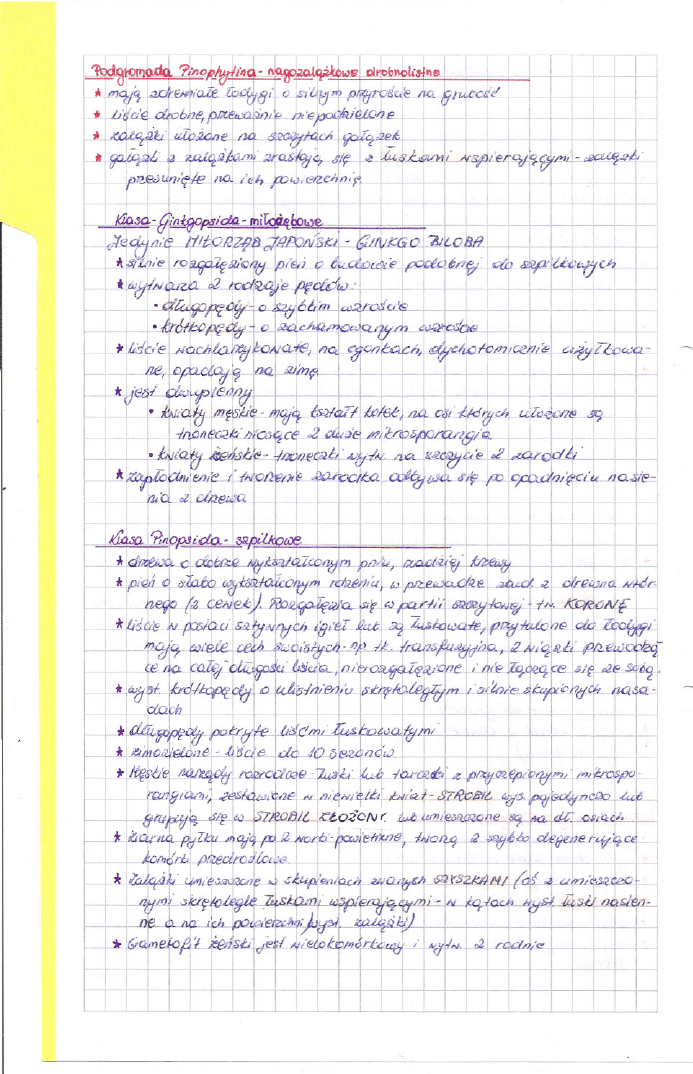 Podgromada Pinophytina - nagozalążkowe drobnolistne
* mają zdrewniałe łodygi o silnym przyroście na grubość
* liście drobne, przeważnie niepodzielone
* zalążki ułożone na szczytach gałązek
* gałązki z zalążkami zrastają się z łuskami wspierającymi - zalążki
przesunięte na ich powierzchnię.
Klasa - Ginkgopsida - miłorzębowe
Jedynie MIŁORZĄB JAPOŃSKI - GINKGO BILOBA
* silnie rozgałęziony pień o budowie podobnej do szpilkowych
* wytwarza 2 rodzaje pędów:
• długopędy - o szybkim wzroście
• krótkopędy - o zachamowanym wzroście
* liście wachlarzykowate, na ogonkach, dychotomicznie użyłkowa-
ne, opadają na zimę
* jest dwupienny
• kwiaty męskie - mają kształt kotek, na osi których ułożone są
trzoneczki niosące 2 duże mikrosporangia
• kwiaty żeńskie - trzoneczki wytw. na szczycie 2 zarodki
* zapłodnienie i tworzenie zarodka odbywa się po opadnięciu nasie-
nia z drzewa
Klasa Pinopsida - szpilkowe
* drzewa o dobrze wykształconym pniu, rzadziej krzewy
* pień o słabo wykształconym rdzeniu, w przewadze zbud. z drewna wtór-
nego (z cewek). Rozgałęzia się w partii szczytowej - tw. KORONĘ
* liście w postaci sztywnych igieł lub są łuskowate, przytulone do łodygi
mają wiele cech swoistych - np. tk. transfuzyjna, 2 wiązki przewodzą-
ce na całej długości liścia, nierozgałęzione i nie łączące się ze sobą.
* wyst. krótkopędy o ulistnieniu skrętoległym i silnie skupionych nasa-
dach
* długopędy pokryte liśćmi łuskowatymi
* zimozielone - liście do 10 sezonów
* Męskie narządy rozrodcze - łuski lub tarczki z przyczepionymi mikrospo-
rangiami, zestawione w niewielki kwiat - STROBIL wys. pojedynczo lub
grupują się w STROBIL ZŁOŻONY. lub umieszczone są na dł. osiach
* ziarna pyłku mają po 2 worki - powietrzne, tworzą 2 szybko degenerujące
komórki przedroślowe.
* Zalążki umieszczone w skupieniach zwanych SZYSZKAMI (oś z umieszczo-
nymi skrętolegle łuskami wspierającymi - w kątach wyst. łuski nasien-
ne a na ich powierzchni wyst. zalążki)
* Gametofit żeński jest wielokomórkowy i wytw. 2 rodnie